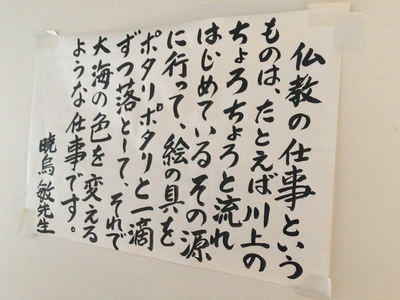 仏教の仕事という
ものは、たとえば川上の
ちょろちょろと流れ
はじめているその源
に行って、絵の具を
ポタリポタリと一滴
ずつ落として、それで
大海の色を変える
ような仕事です。
暁烏敏先生